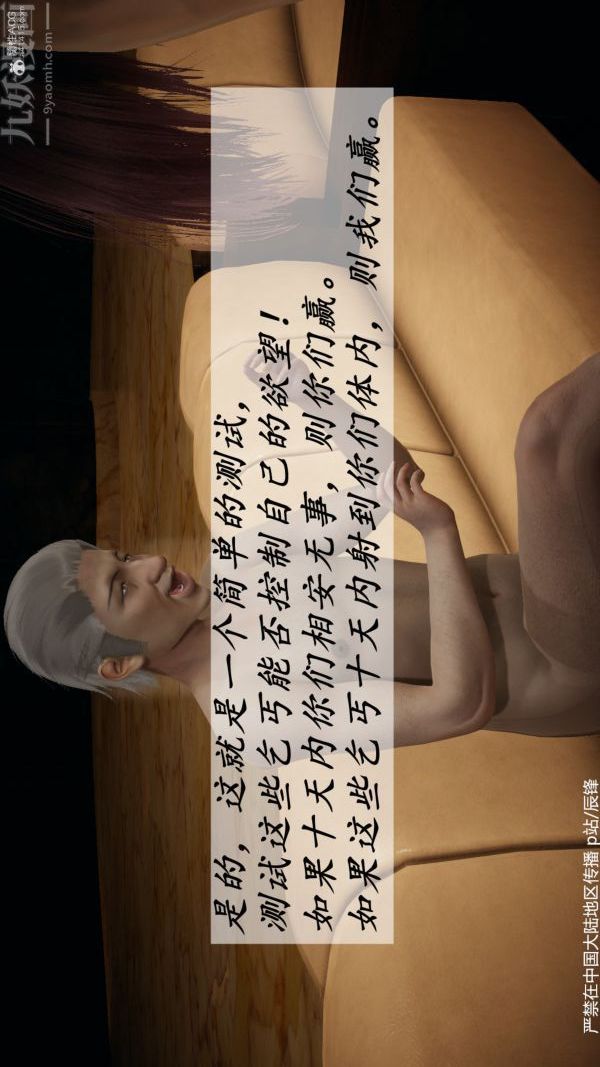 是的，这就是一个简单的测试，
测试这些乞丐能否控制自己的欲望！
如果十天内你们相安无事，则你们赢。
如果这些乞丐十天内射到你们体内，则我们赢。
九妖漫画
9yaomh.com
严禁在中国大陆地区传播 p站/辰锋